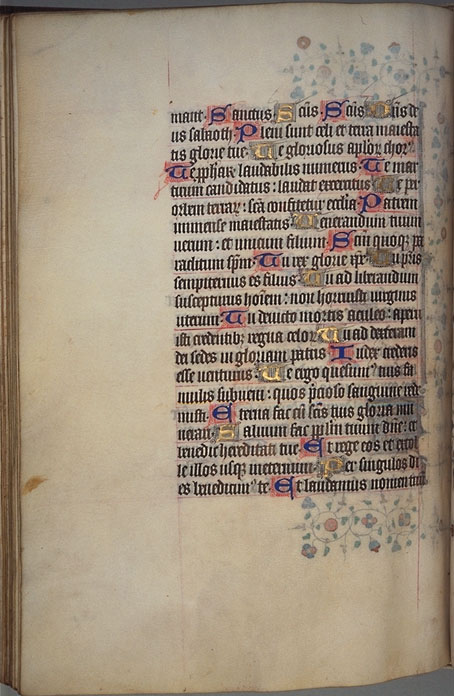 mant. Sanctus Scūs Scūs dn̄s de
us sabaoth. Pleni sunt celi et terra maiesta
tis glorie tue. Te gloriosus aplor chor9
Te ꝓphar laudabilis numerus. Te mar
tirum candidatus: laudat exercitus Te per
orbem terrar: scā confitetur ecclīa. Patrem
immense maiestatis Venerandum tuum
uerum: et unicum filium. Scūm quoqꝫ pa
raclitum sp̄m. Tu rex glorie xp̄e. Tu pr̄is
sempiternus es filius. Tu ad liberandum
suscepturus hoīem: non horruisti uirginis
uterum. Tu deuicto mortis aculeo: aperu
isti credentibꝫ regna celor Tu ad dexteram
dei sedes in gloriam patris Iudex crederis
esse uenturus. Te ergo quesumꝰ tuis fa
mulis subueni: quos p̄cioso sanguine rede
misti. Eterna fac cū scīs tuis gloria mu
nerari. Saluum fac pplm tuum dn̄e: et
benedic hereditati tue. Et rege eos et extol
le illos usqꝫ in eternum. Per singulos di
es benedicimꝰ te. Et laudamus nomen tuū